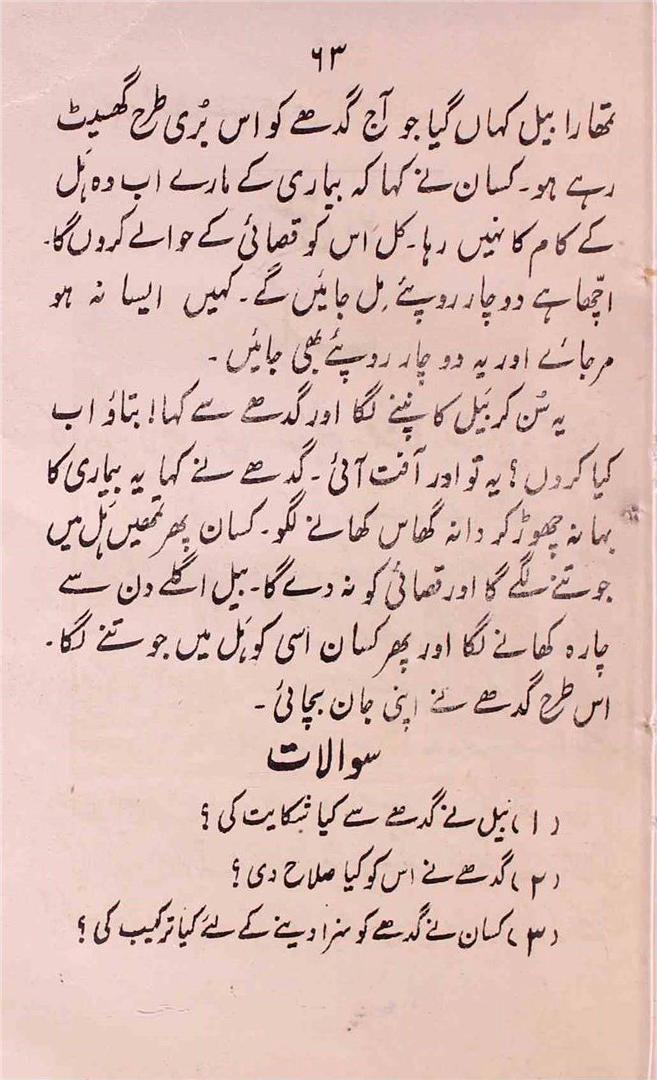 ۶۳
تمھارا بیل کہاں گیا جو آج گدھے کو اس بُری طرح گھسیٹ
رہے ہو۔ کسان نے کہا کہ بیماری کے مارے اب وہ ہَل
کے کام کا نہیں رہا۔ کل اس کو قصائی کے حوالے کروں گا۔
اچّھا ہے دو چار روپئے مِل جائیں گے۔ کہیں ایسا نہ ہو
مر جائے اور یہ دو چار روپئے بھی جائیں۔
یہ سُن کر بَیل کانپنے لگا اور گدھے سے کہا! بتاؤ اب
کیا کروں؟ یہ تو اور آفت آئی۔ گدھے نے کہا یہ بیماری کا
بہانہ چھوڑ کر دانہ گھاس کھانے لگو۔ کسان پھر تمھیں ہَل میں
جوتنے لگے گا اور قصائی کو نہ دے گا۔ بیل اگلے دن سے
چارہ کھانے لگا اور پھر کسان اسی کو ہَل میں جوتنے لگا۔
اس طرح گدھے نے اپنی جان بچائی۔
سوالات
(۱) بَیل نے گدھے سے کیا شکایت کی؟
(۲) گدھے نے اس کو کیا صلاح دی؟
(۳) کسان نے گدھے کو سزا دینے کے لئے کیا ترکیب کی؟